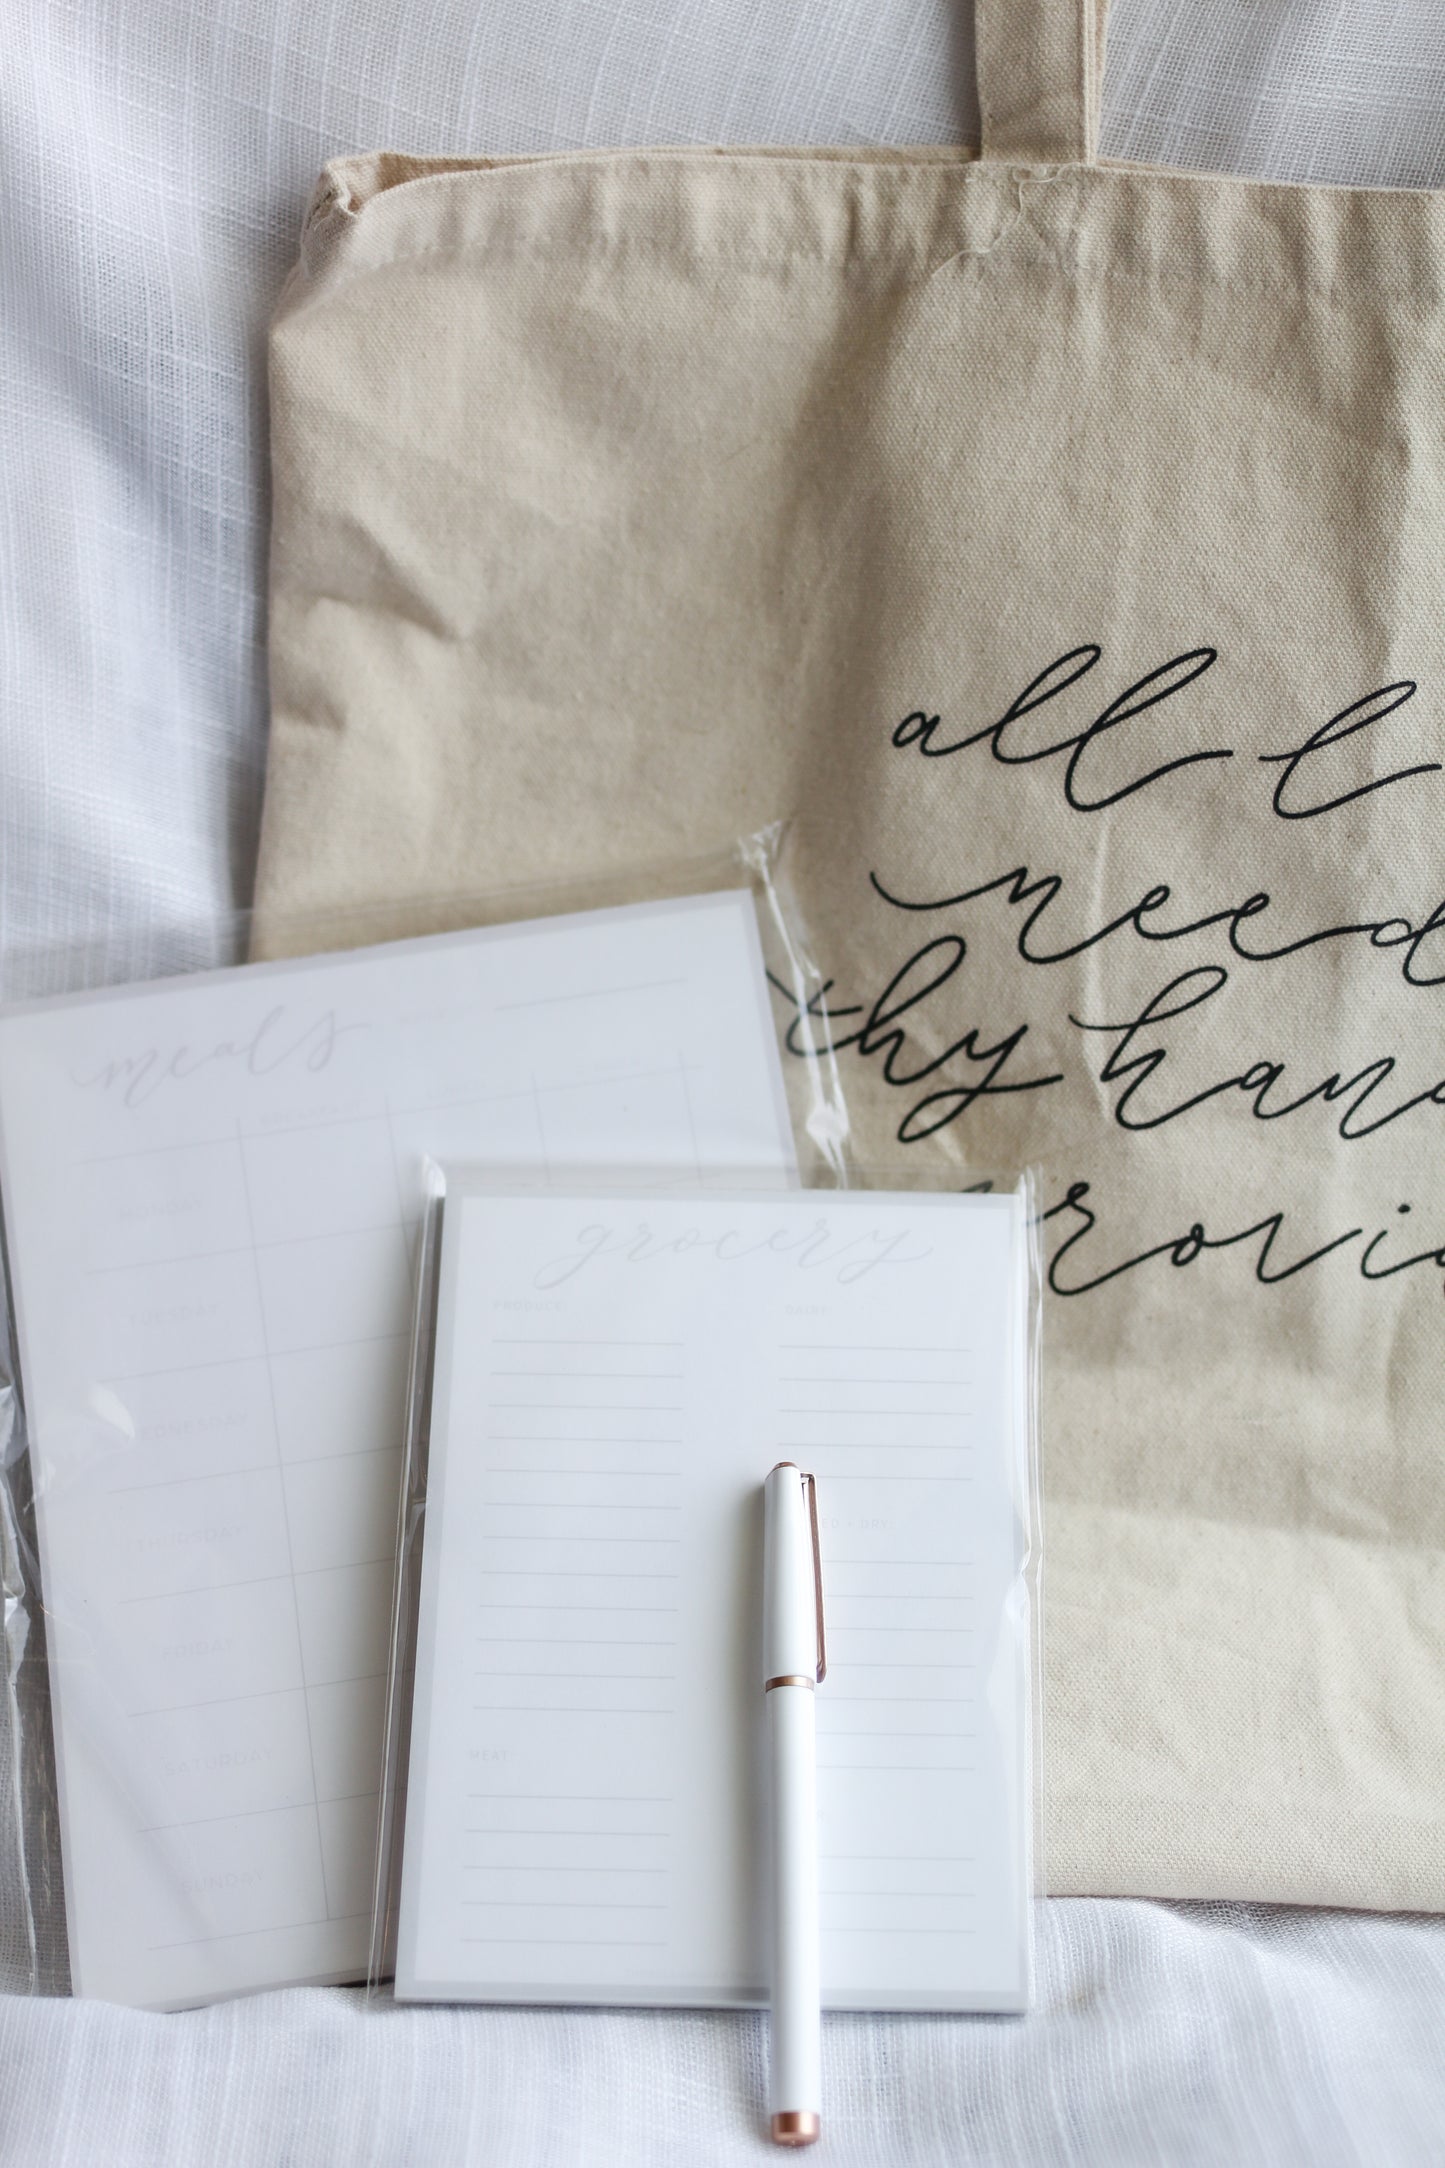 all
need
thy hand
meals
BREAKFAST
MONDAY
TUESDAY
WEDNESDAY
THURSDAY
FRIDAY
SATURDAY
SUNDAY
grocery
PRODUCE:
MEAT:
DAIRY:
ED + DRY: